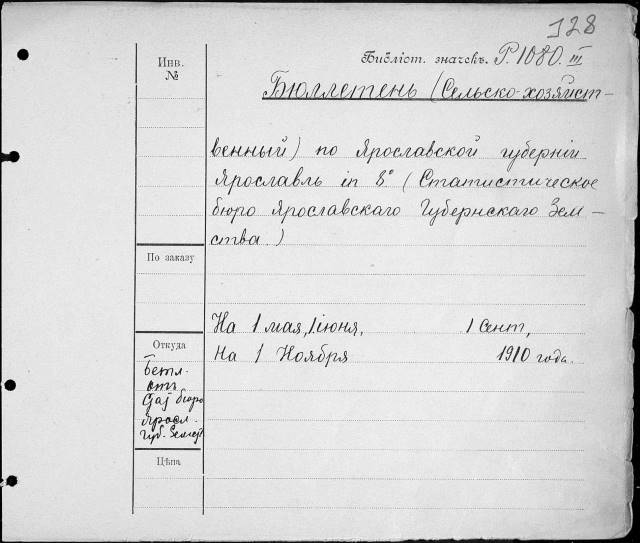 128
Библіот. значекъ. P. 1080. III
Инв.
№
Бюллетень (Сельско-хозяйст-
венный) по Ярославской губерніи
Ярославль in 8° (Статистическое
бюро Ярославскаго Губернскаго Зем-
ства.)
По заказу
На 1 мая, 1 іюня, 1 Сент,
Откуда
На 1 Ноября 1910 года.
отъ
бюро
Яросл.
Губ.
Цѣна